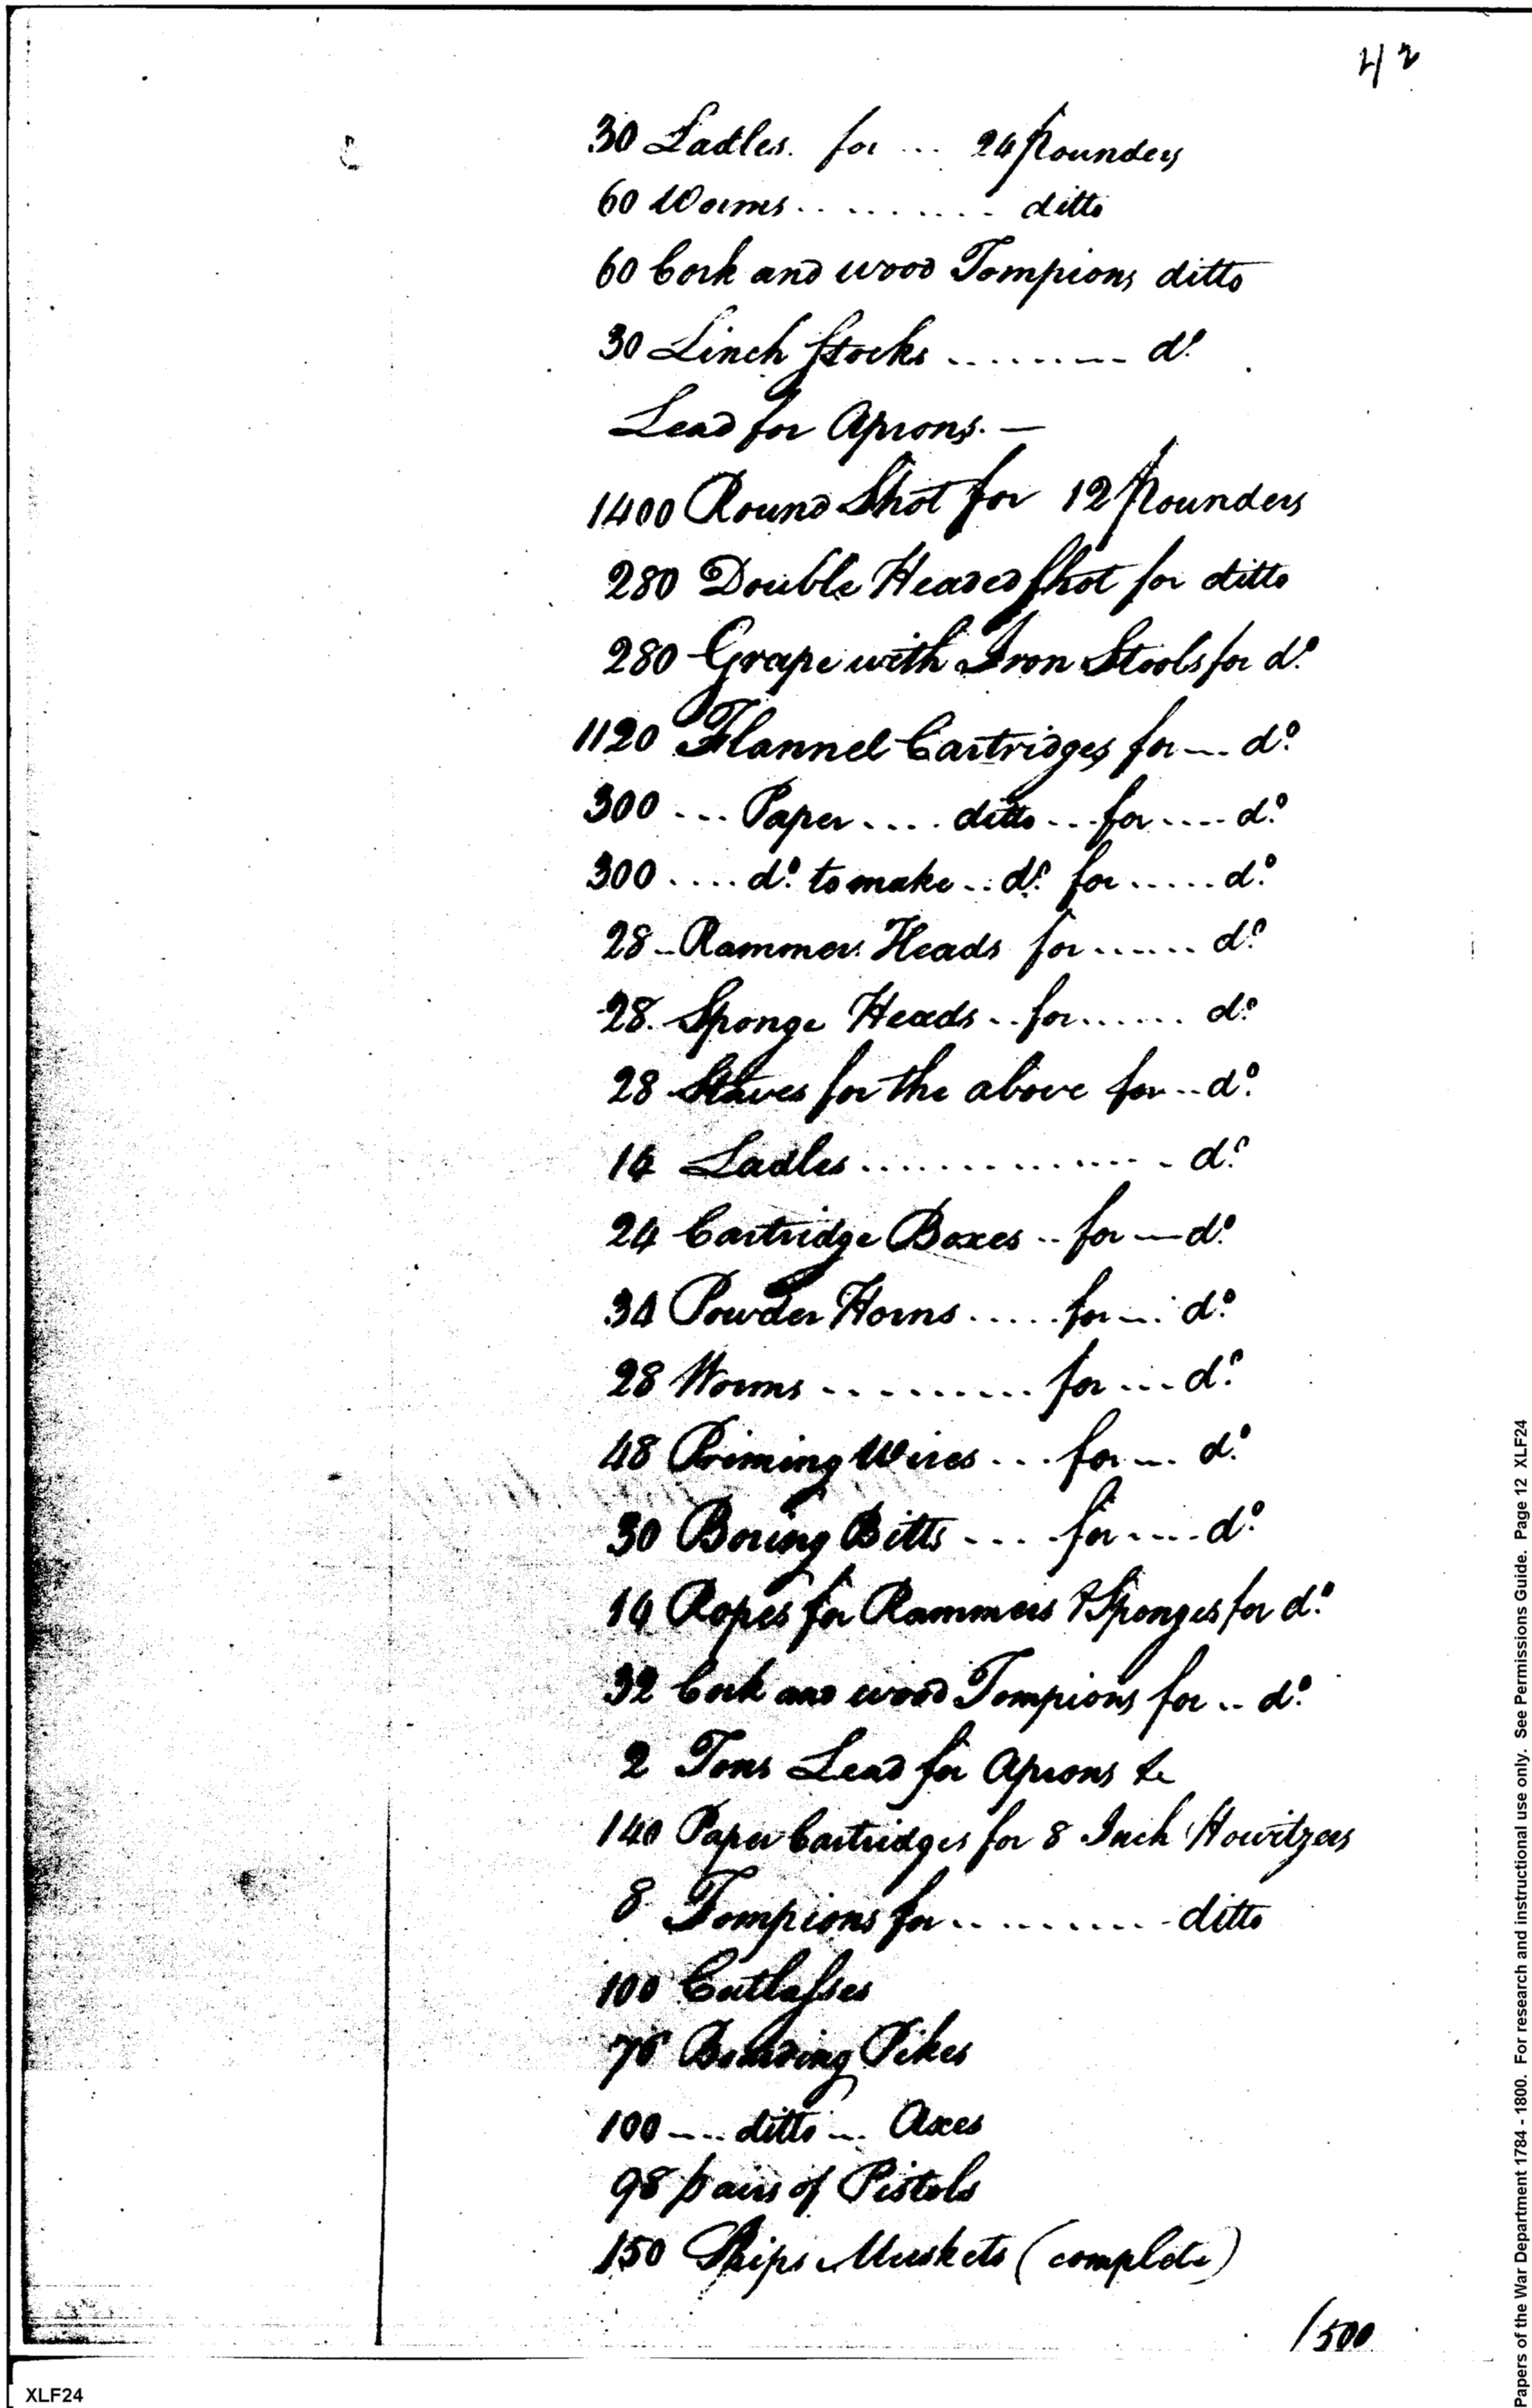 42
30 Ladles. for ... 24 Pounders
60 Worms .......... ditto
60 Cork and wood Tompions ditto
30 Linch Stocks ......... do.
Lead for Aprons. —
1400 Round Shot for 12 Pounders
280 Double Headed Shot for ditto
280 Grape with Iron Stools for do.
1120 Flannel Cartridges for ... do.
300 ... Paper .... ditto ... for .... do.
300 .... do. to make .. do. for ..... do.
28 .. Rammer Heads for ...... do.
28. Sponge Heads .. for ...... do.
28 Staves for the above for .. do.
14 Ladles ............... do.
24 Cartridge Boxes .. for — do.
34 Powder Horns ..... for ... do.
28 Worms ......... for ... do.
48 Priming Wires ... for ... do.
30 Boring Bitts .... for .... do.
14 Ropes for Rammers & Sponges for do.
32 Cork and wood Tompions for .. do.
2 Tons Lead for Aprons &c
140 Paper Cartridges for 8 Inch Howitzers
8 Tompions for .......... ditto
100 Cutlasses
76 Boarding Pikes
100 .... ditto ... Axes
98 pairs of Pistols
150 Ships Muskets (complete)
/500
XLF24
Papers of the War Department 1784 - 1800. For research and instructional use only. See Permissions Guide. Page 12 XLF24